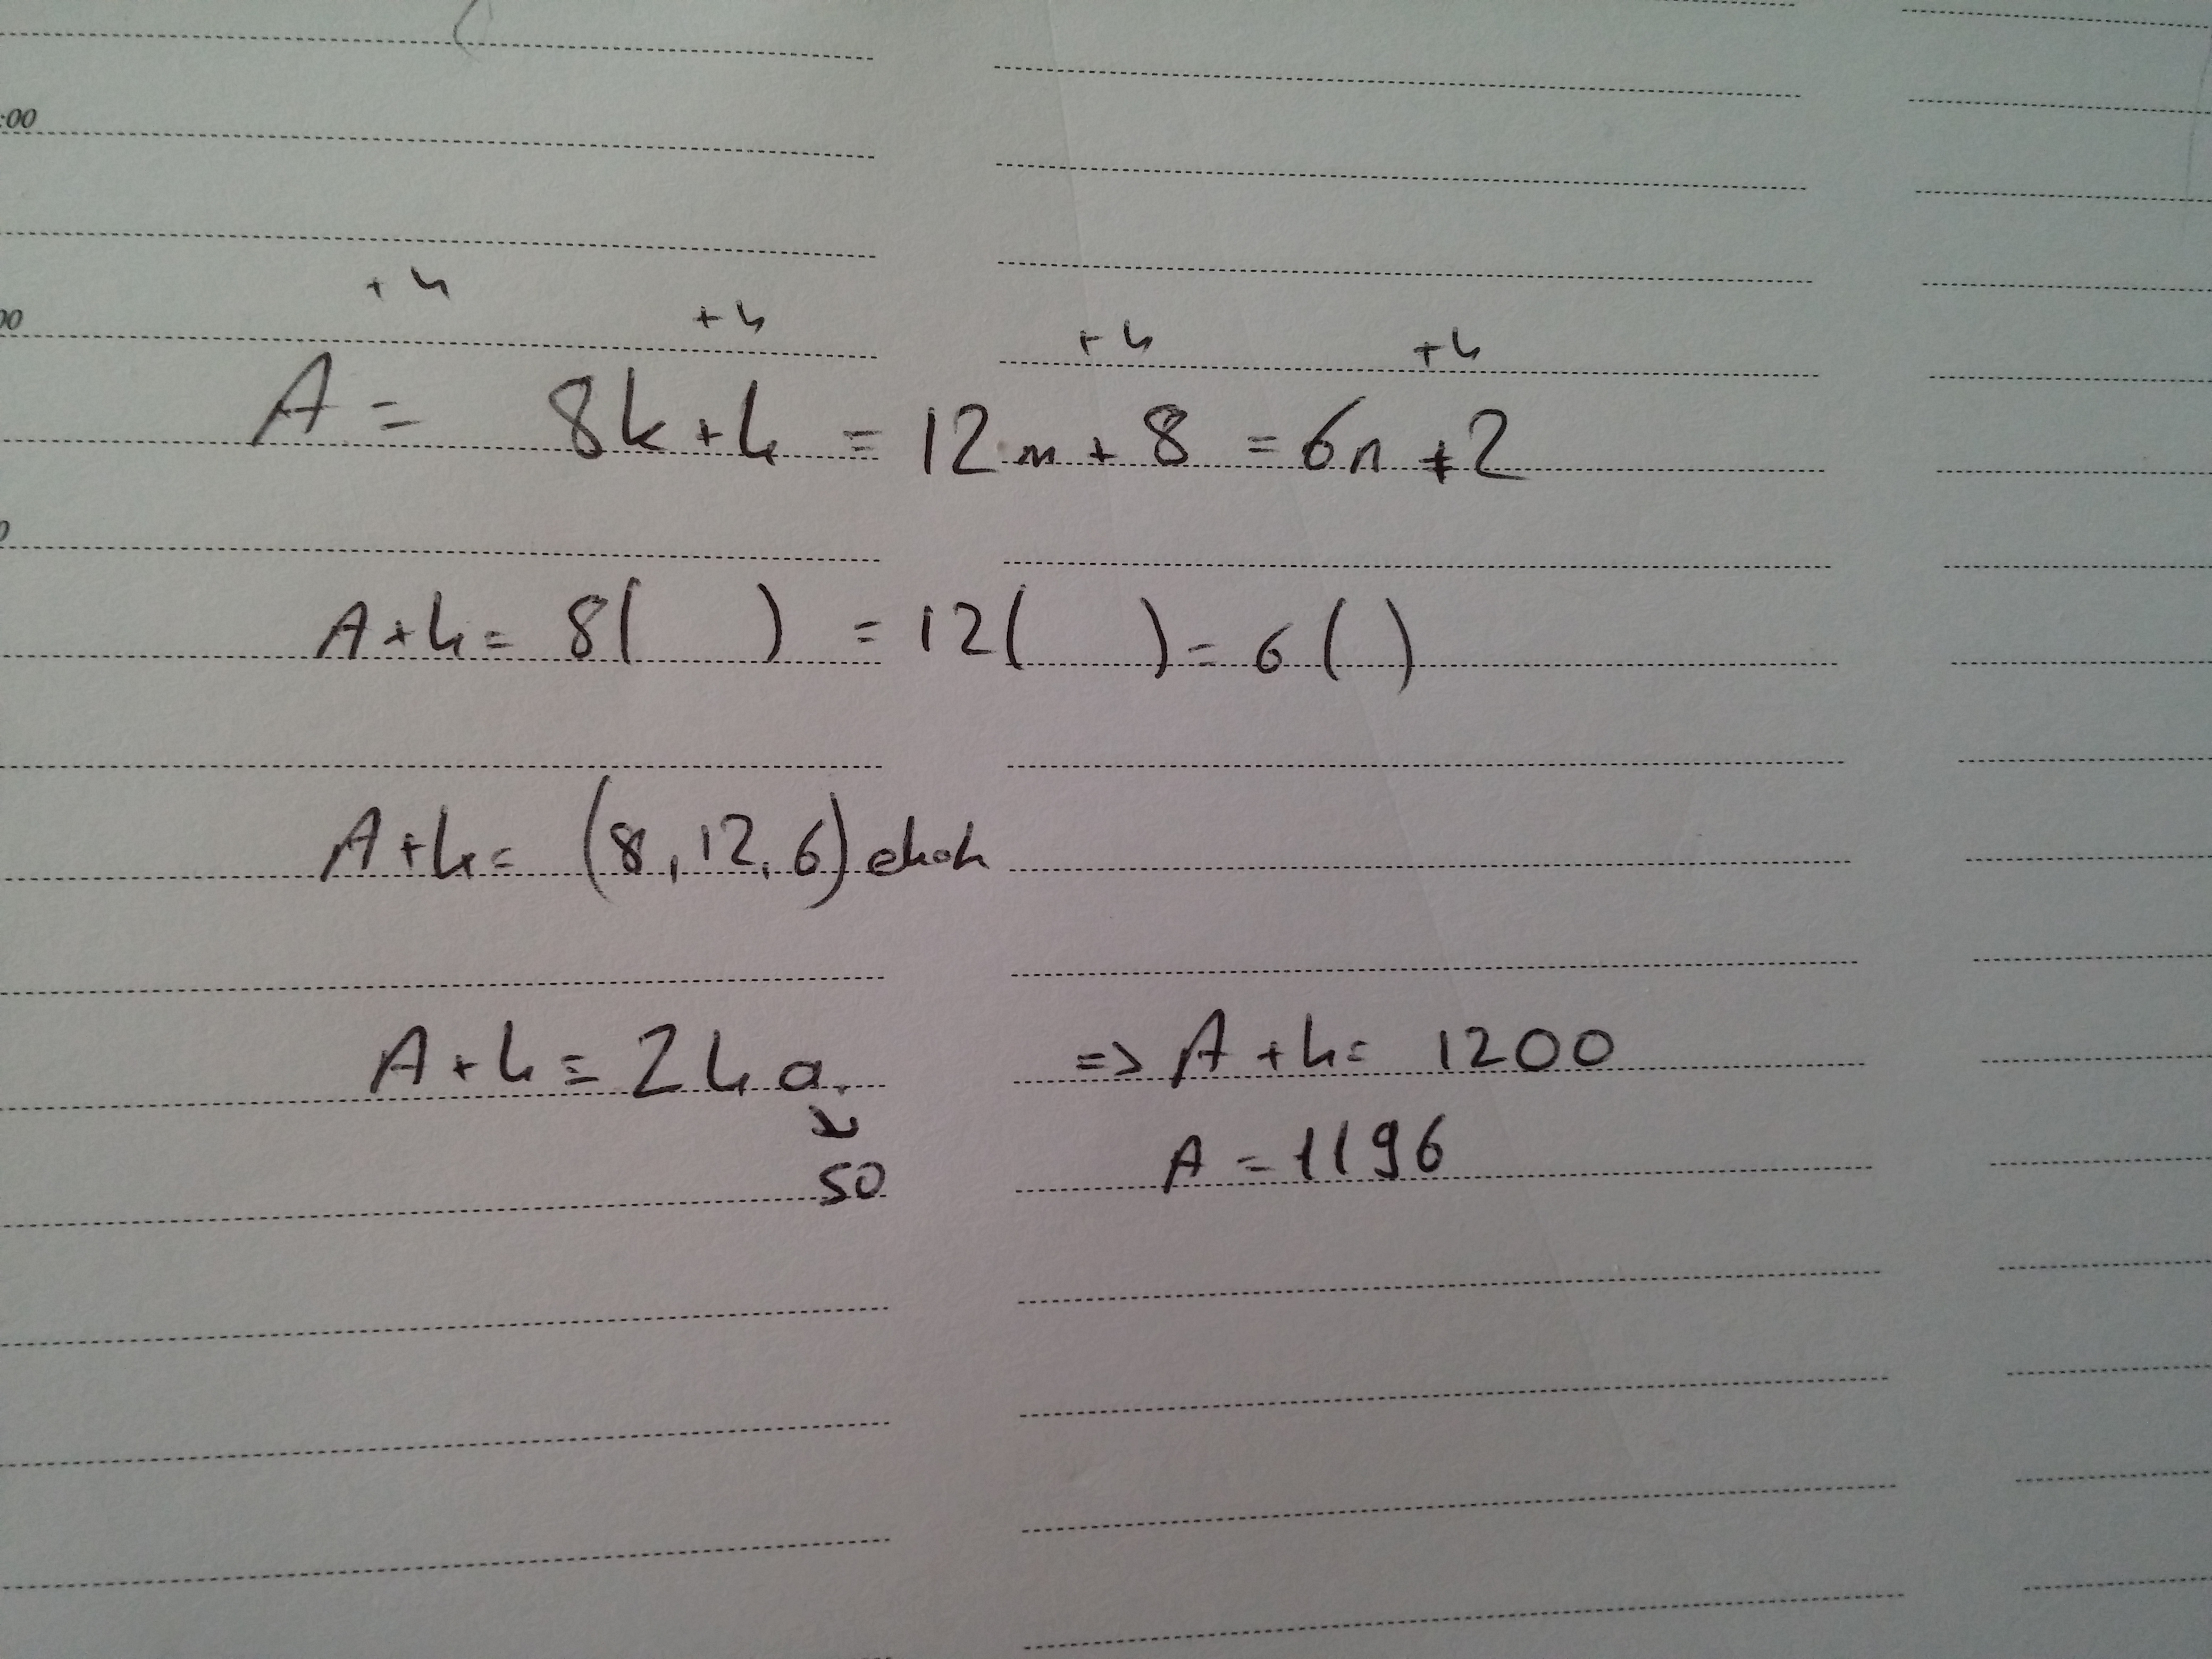 :00
00
0
+4 +4 +4 +4
A = 8k+4 = 12m+8 = 6n+2
A+4= 8( ) = 12( ) = 6( )
A+4= (8,12,6)ekok
A+4= 24a. => A+4= 1200
50 A = 1196